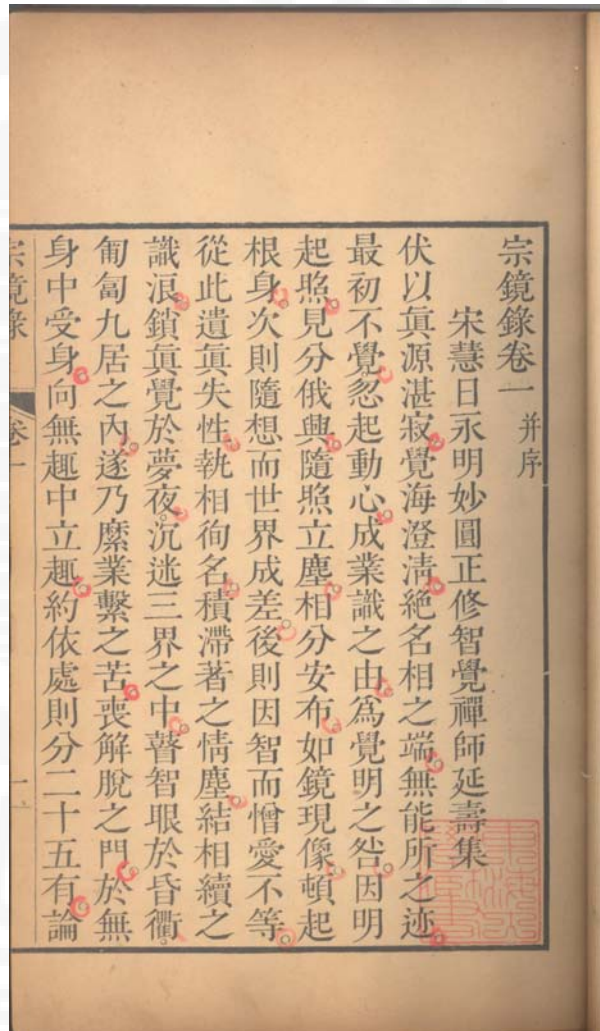 宗鏡錄卷一 并序
宋慧日永明妙圓正修智覺禪師延壽集
伏以眞源湛寂覺海澄淸絶名相之端無能所之迹
最初不覺忽起動心成業識之由爲覺明之咎因明
起照見分俄興隨照立塵相分安布如鏡現像頓起
根身次則隨想而世界成差後則因智而憎愛不等
從此遺眞失性執相徇名積滯著之情塵結相續之
識浪鎖眞覺於夢夜沉迷三界之中瞽智眼於昏衢
匍匐九居之內遂乃縻業繫之苦喪解脫之門於無
身中受身向無趣中立趣約依處則分二十五有論
宗鏡錄 卷一 一